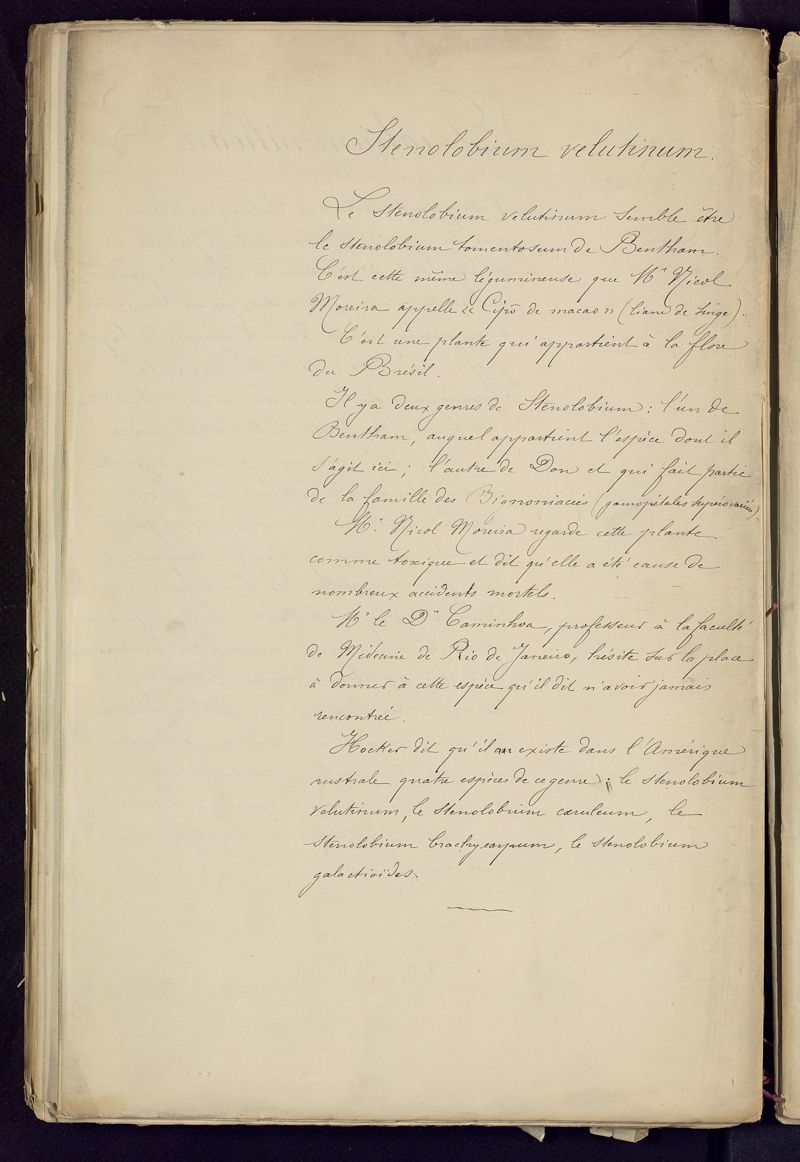 Stenolobium velutinum.
Le stenolobium velutinum semble être
le stenolobium tomentosum de Bentham.
C'est cette même légumineuse que Mr Nicol
Moreira appelle « Cipō de macao » (liane de singe).
C'est une plante qui appartient à la flore
du Brésil.
Il y a deux genres de Stenolobium : l'un de
Bentham, auquel appartient l'espèce dont il
s'agit ici ; l'autre de Don et qui fait partie
de la famille des Bignoniacées (gamopétales supérovariées)
Mr. Nicol Moreira regarde cette plante
comme toxique et dit qu'elle a été cause de
nombreux accidents mortels.
Mr le Dr Caminhoa, professeur à la faculté
de Médecine de Rio de Janeiro, hésite sur la place
à donner à cette espèce qu'il dit n'avoir jamais
rencontrée.
Hocker dit qu'il existe dans l'Amérique
australe quatre espèces de ce genre : le stenolobium
velutinum, le stenolobium cæruleum, le
stenolobium brachycarpum, le stenolobium
galactioïdes.